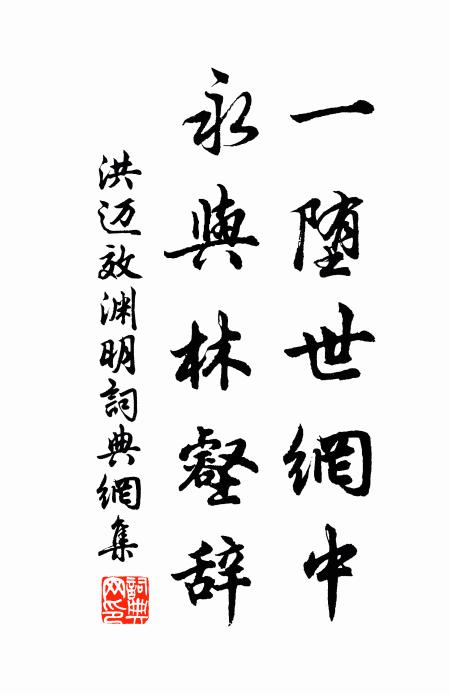 一堕世網中
永與林壑辞
洪迈效渊明詞典網集
詞典網印